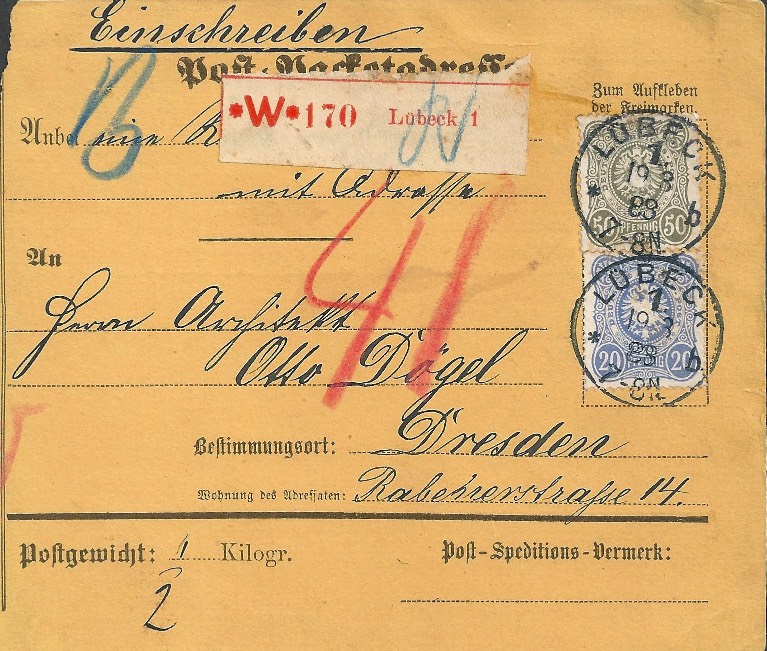 Einschreiben
Post-Packetadresse
*W*170 Lübeck 1
Zum Aufkleben
der Freimarken.
Anbei eine
mit Adresse
41
An
Herrn Architekt
Otto Dögel
LÜBECK
1
19 3
88
7-8N
* b
50 PFENNIG 50
LÜBECK
1
19 3
88
7-8N
* b
20 20
Bestimmungsort: Dresden
Wohnung des Adressaten: Rabenerstrasse 14.
Postgewicht: 1 Kilogr.
2
Post-Speditions-Vermerk: